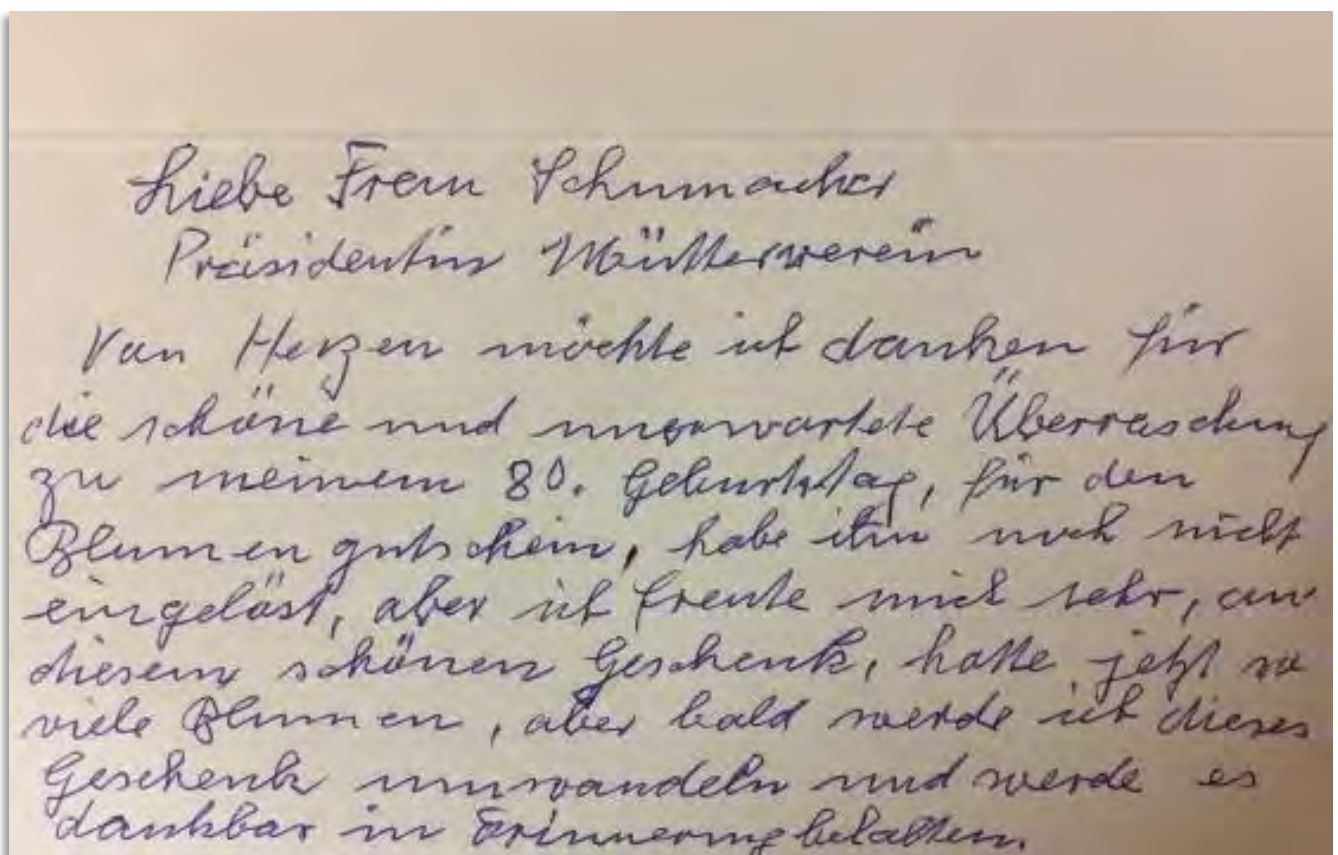 Liebe Frau Schumacher
Präsidentin Mütterverein
Von Herzen möchte ich danken für
die schöne und unerwartete Überraschung
zu meinem 80. Geburtstag, für den
Blumengutschein, habe ihn noch nicht
eingelöst, aber ich freute mich sehr, an
diesem schönen Geschenk, hatte jetzt so
viele Blumen, aber bald werde ich dieses
Geschenk umwandeln und werde es
dankbar in Erinnerung behalten.